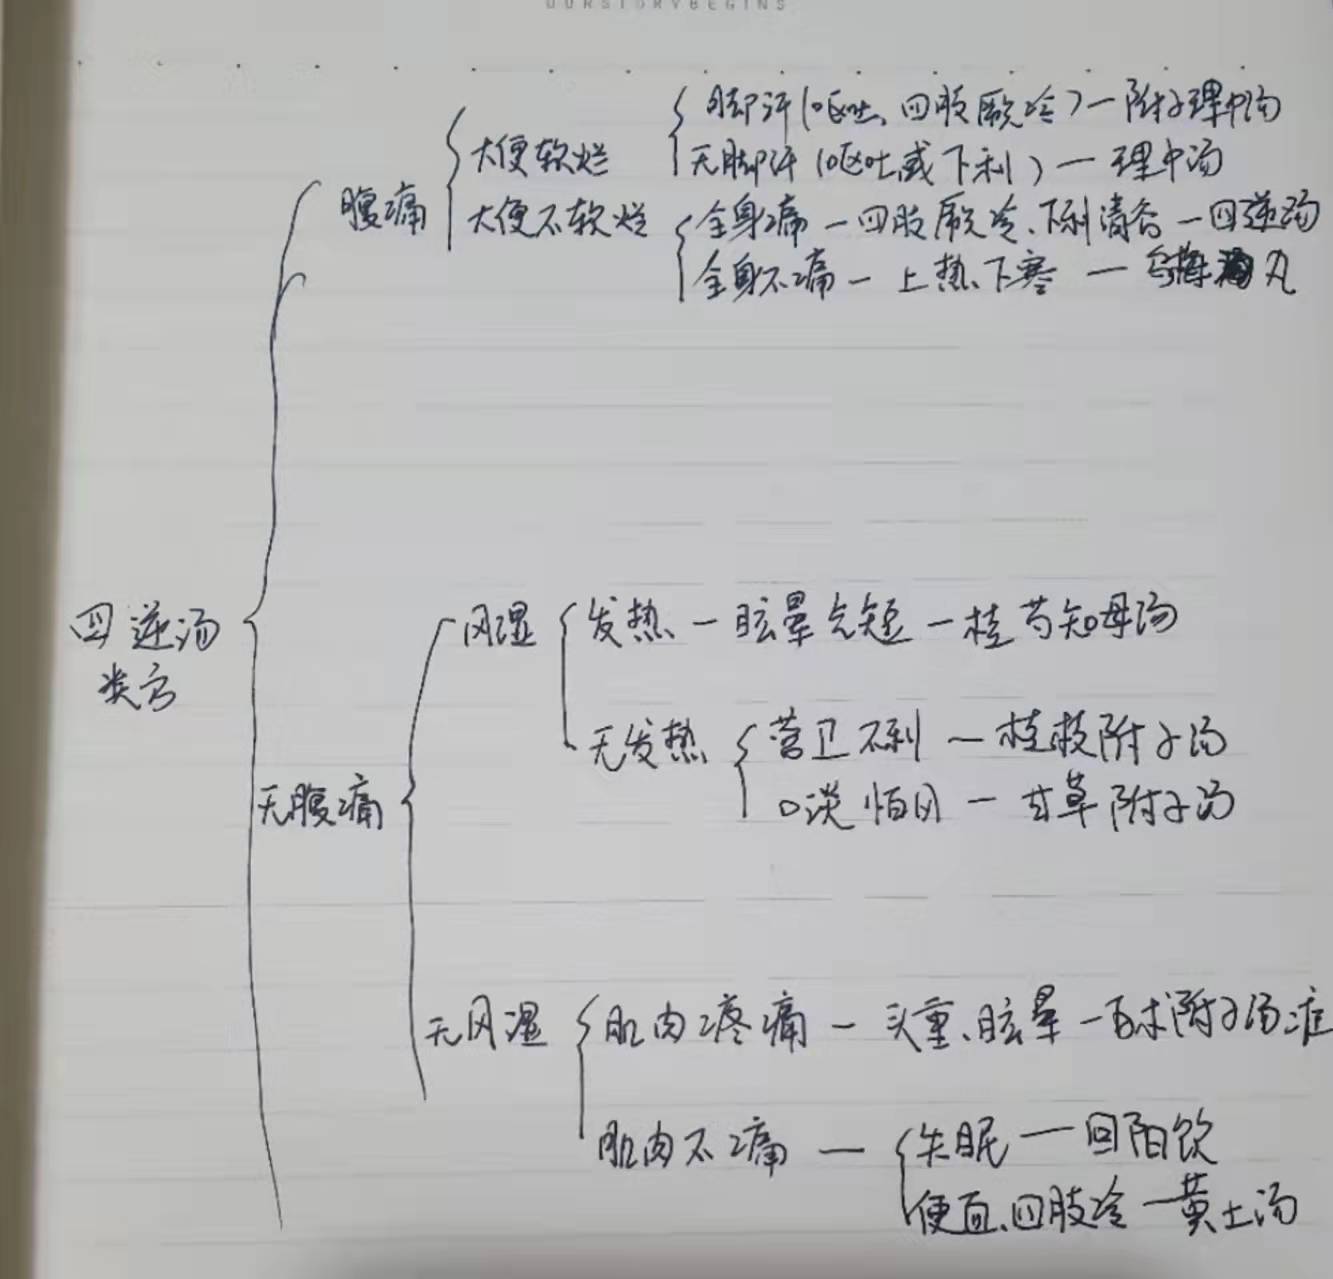 OURSTORYBEGINS
脚汗(呕吐、四肢厥冷)—附子理中汤
大便软烂
无脚汗(呕吐或下利)—理中汤
腹痛
大便不软烂
全身痛—四肢厥冷、下利清谷—四逆汤
全身不痛—上热下寒—乌梅丸
四逆汤
类方
风湿
发热—眩晕气短—桂芍知母汤
无发热
营卫不利—桂枝附子汤
口淡怕风—甘草附子汤
无腹痛
无风湿
肌肉疼痛—头重、眩晕—白术附子汤
肌肉不痛—
失眠—回阳饮
便血、四肢冷—黄土汤